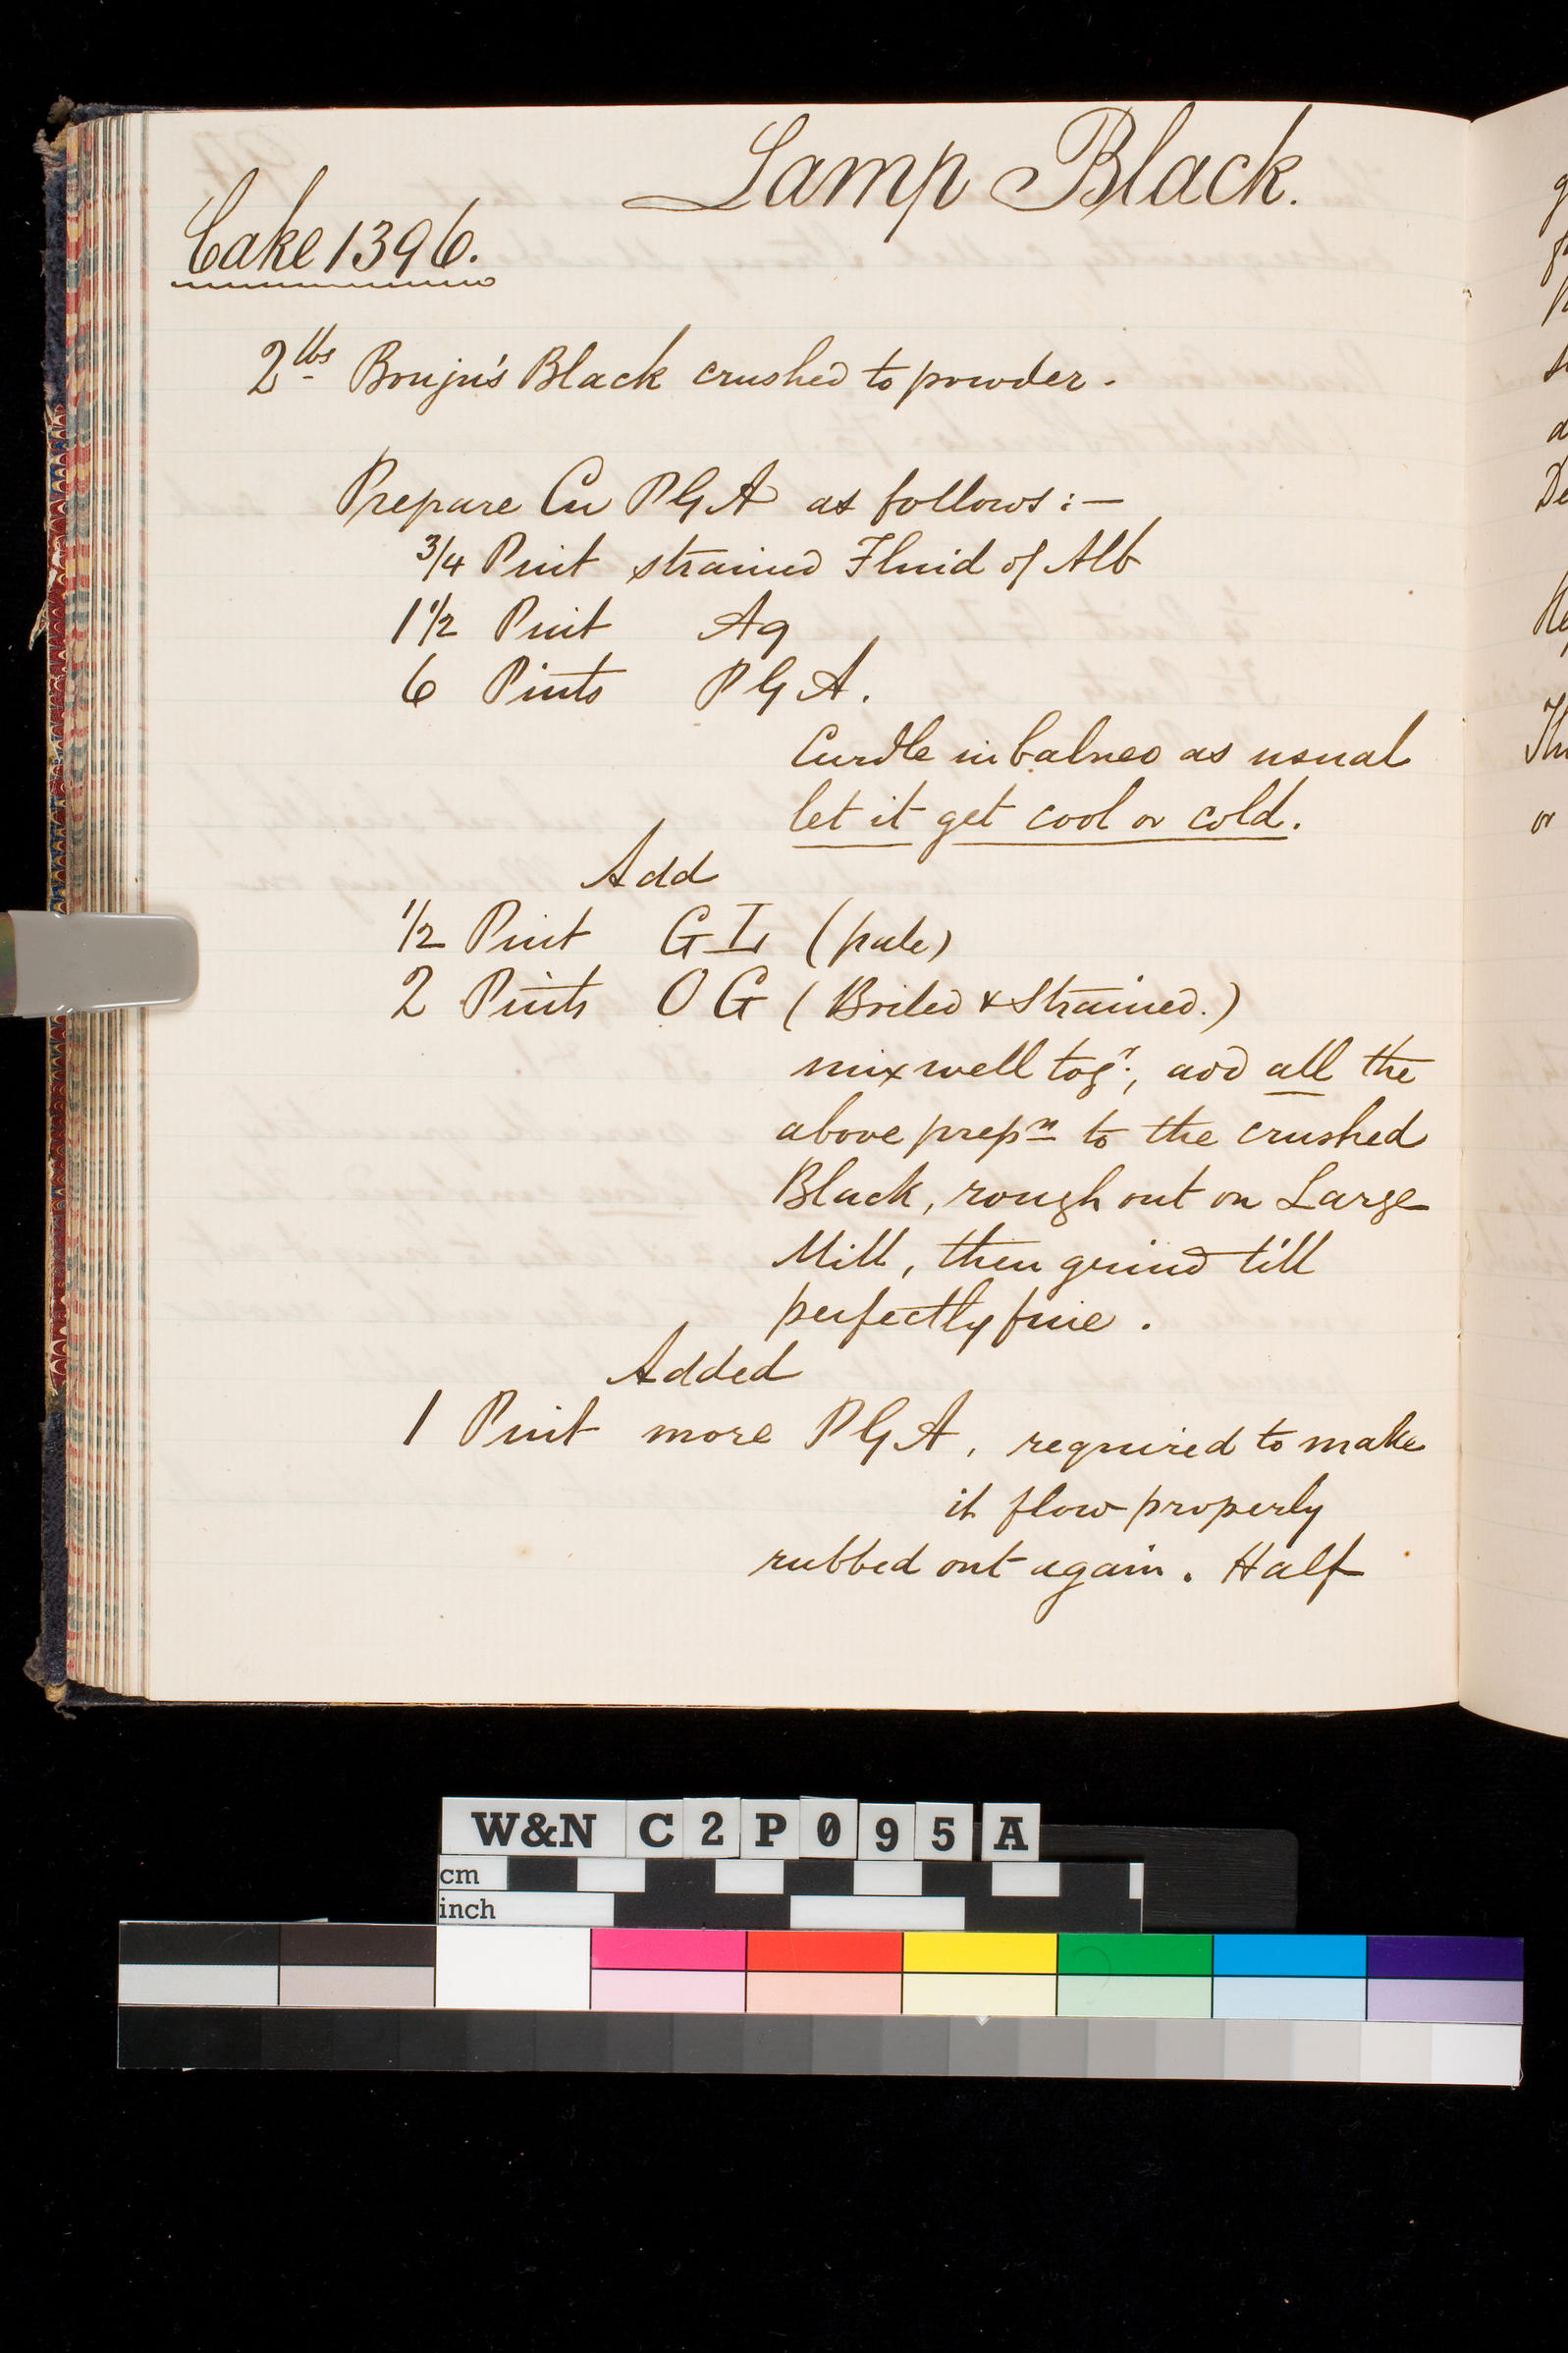 Lamp Black.
Cake 1396.
2 lbs Bouju's Black crushed to powder.
Prepare Cu PGA as follows:—
3/4 Pint strained Fluid of Alb
1 1/2 Pint Aq
6 Pints PGA.
Curdle in balneo as usual
let it get cool or cold.
Add
1/2 Pint GL (pale)
2 Pints OG (Boiled & Strained.)
mix well togr., add all the
above prepn to the crushed
Black, rough out on Large
Mill, then grind till
perfectly fine.
Added
1 Pint more PGA, required to make
it flow properly
rubbed out again. Half
W&N C2P095A
cm
inch